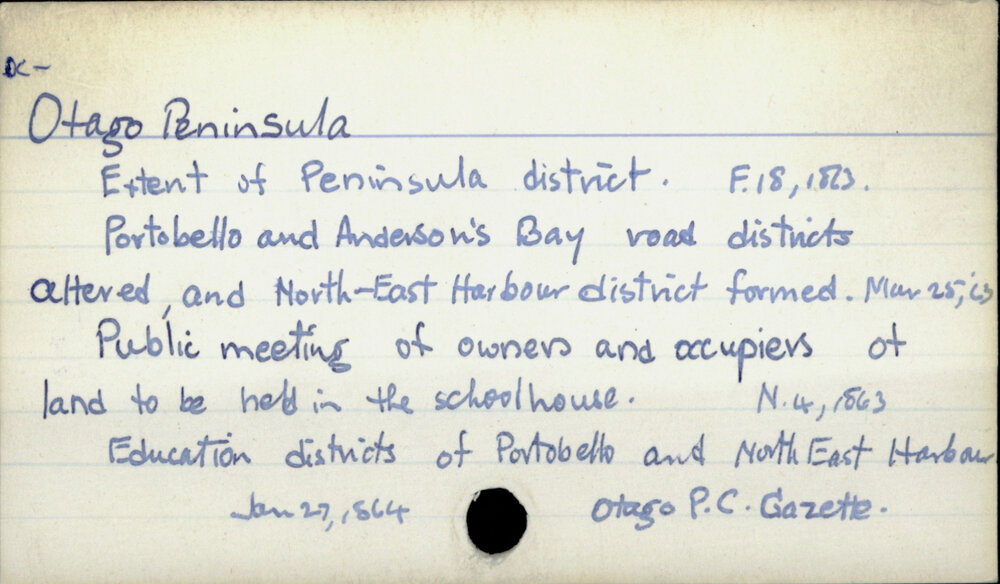 Otago Peninsula
Extent of Peninsula district. F.18, 1863.
Portobello and Anderson's Bay road districts
altered, and North-East Harbour district formed. Mar 25, 63
Public meeting of owners and occupiers of
land to be held in the schoolhouse. N. 4, 1863
Education districts of Portobello and North East Harbour
Jan 27, 1864 Otago P.C. Gazette.